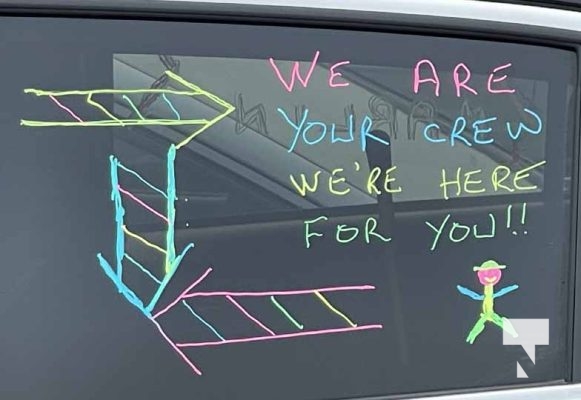 WE ARE
YOUR CREW
WE'RE HERE
FOR YOU!!